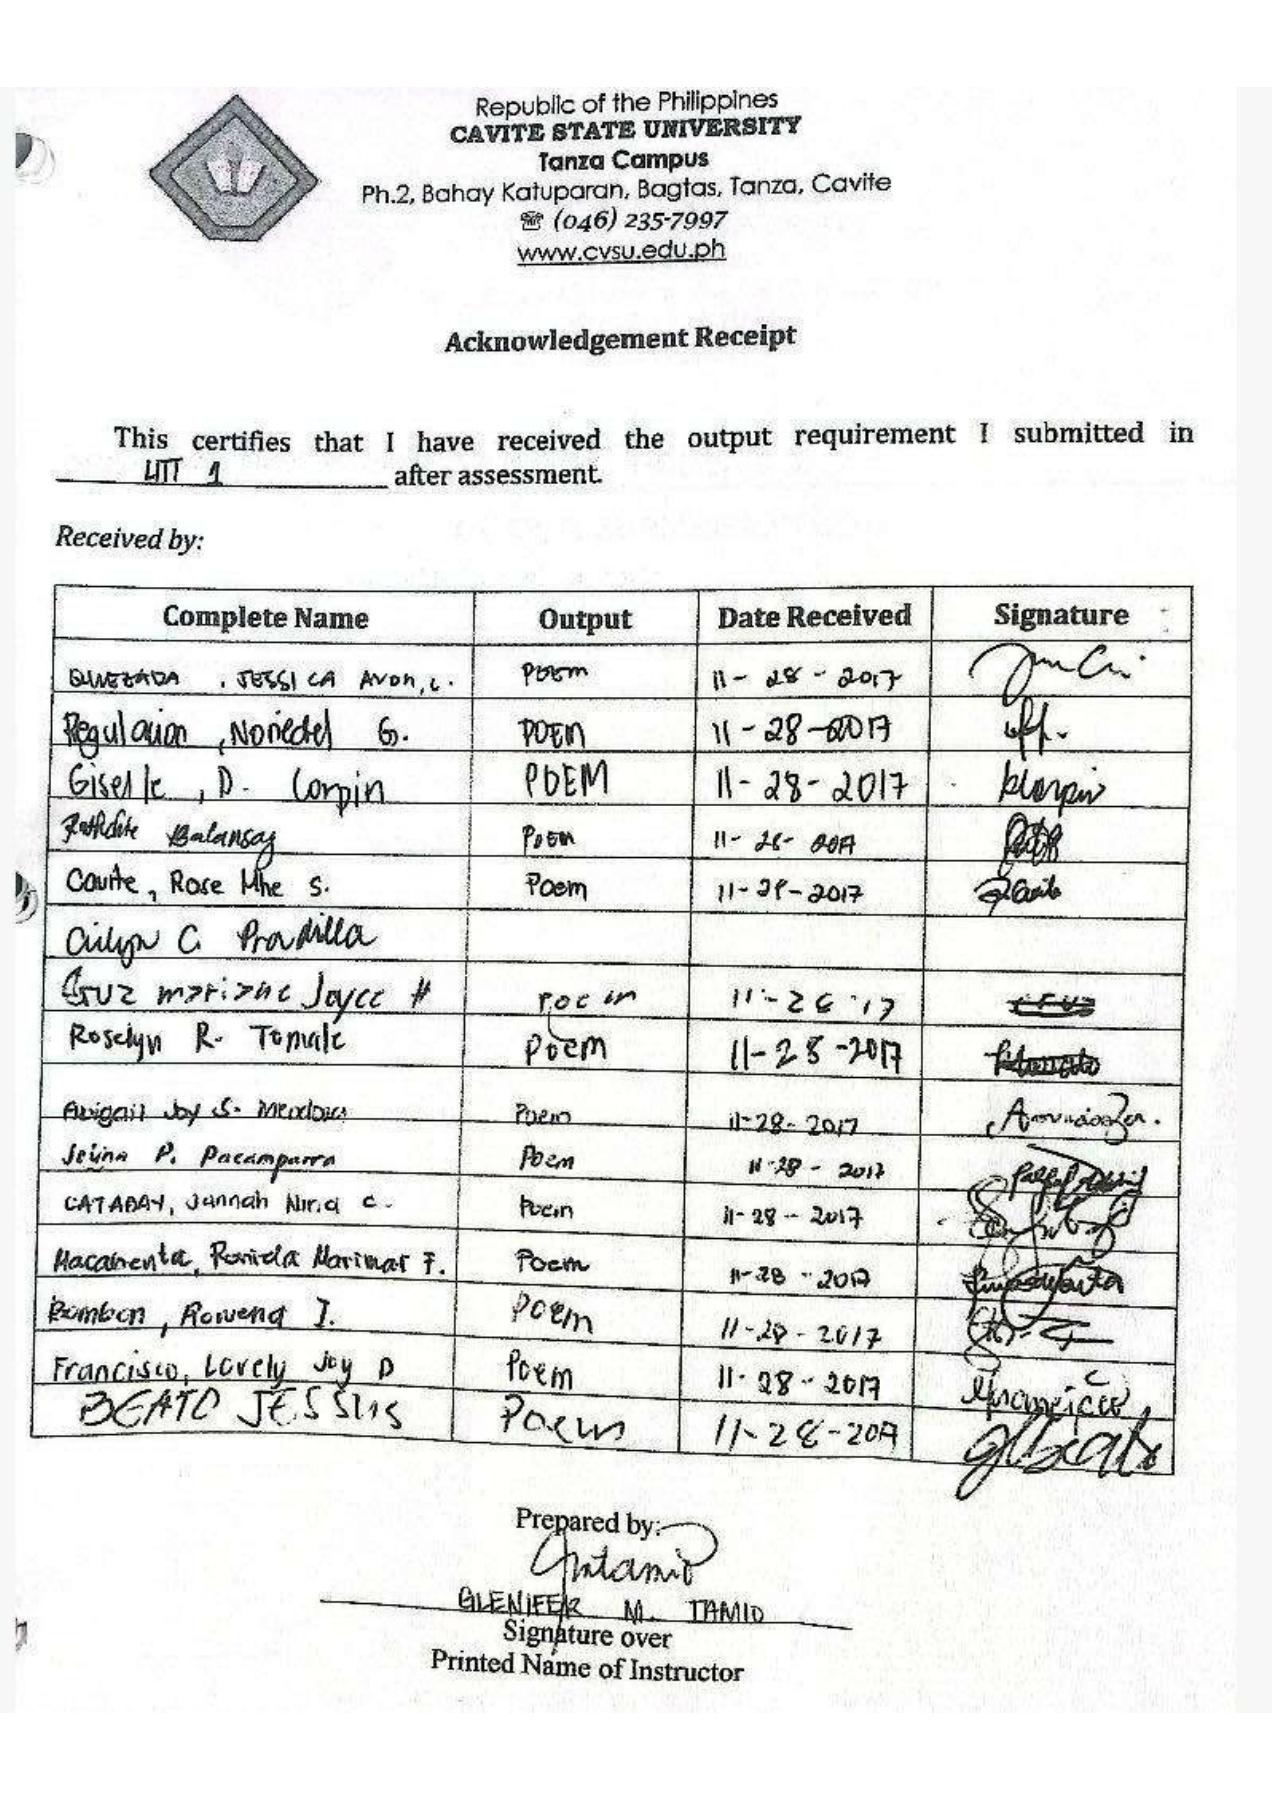 Republic of the Philippines
CAVITE STATE UNIVERSITY
Tanza Campus
Ph.2, Bahay Katuparan, Bagtas, Tanza, Cavite
☏ (046) 235-7997
www.cvsu.edu.ph
Acknowledgement Receipt
This certifies that I have received the output requirement I submitted in
LITT 1 after assessment.
Received by:
Complete Name Output Date Received Signature
QUEZADA, JESSICA Avon, C. POEM 11-28-2017
Regulacion, Noriedel G. POEM 11-28-2017
Giselle, D. Corpin POEM 11-28-2017
Balansag POEM 11-28-2017
Cavite, Rose Mhe S. Poem 11-28-2017
Ailyn C. Pradilla
Cruz Mariane Joyce H Poem 11-28-17 Cruz
Roselyn R. Tomale Poem 11-28-2017
Abigail Joy S. Mendoza Poem 11-28-2017 Amendoza.
P. Pacamparra Poem 11-28-2017
CATABAY, Jannah Nina C. Poem 11-28-2017
Macabenta, Marimar F. Poem 11-28-2017
Bombon, Rowena I. Poem 11-28-2017
Francisco, Lovely Joy D Poem 11-28-2017
BEATO JESSUS Poem 11-28-2017
Prepared by:
GLENIFER M. TAMIO
Signature over
Printed Name of Instructor